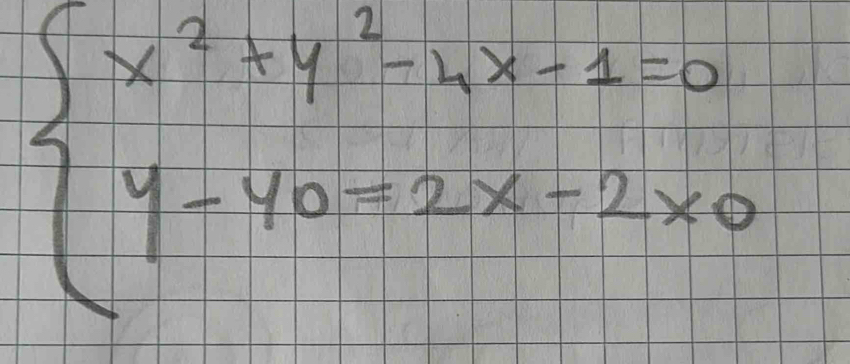 x² + y² - 4x - 1 = 0
y - y0 = 2x - 2x0